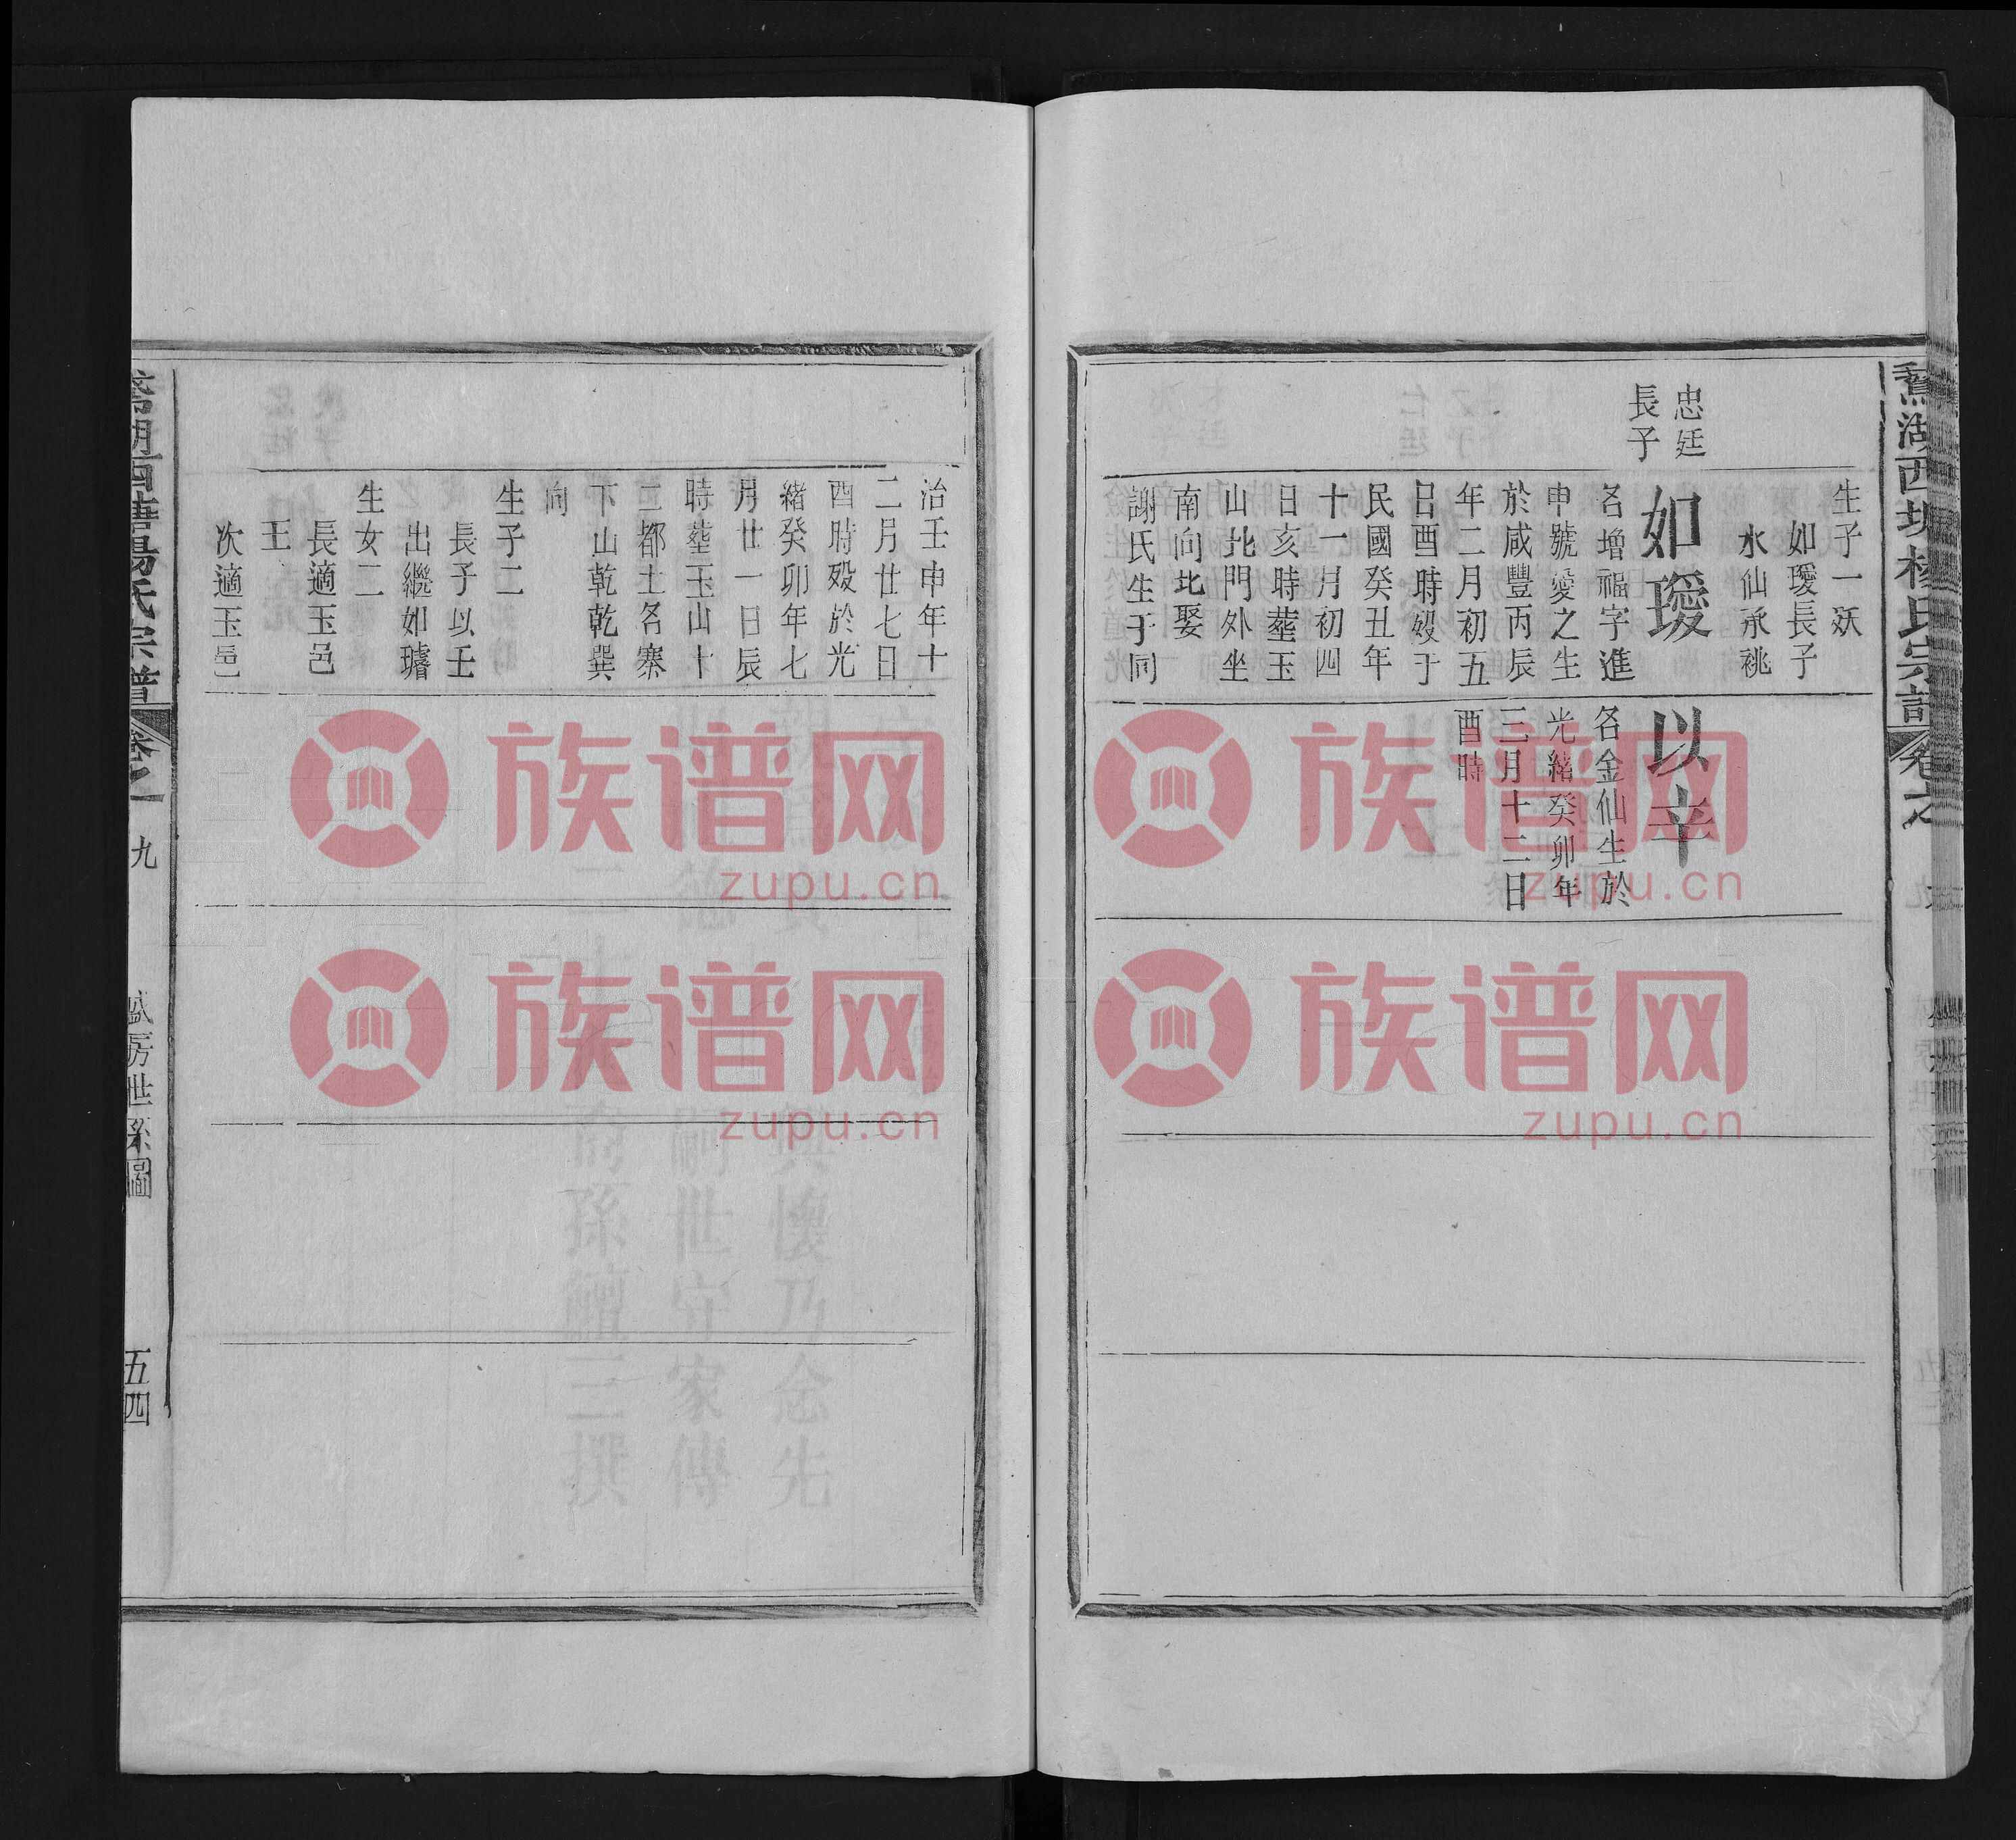 鵞湖西塘楊氏宗譜
卷之
生子一㳀
如璦長子
水仙承祧
忠廷
長子
如璦
名增福字進
申號愛之生
於咸豐丙辰
年二月初五
日酉時歿于
民國癸丑年
十一月初四
日亥時塟玉
山北門外坐
南向北娶
謝氏生于同
以辛
名金仙生於
光緒癸卯年
三月十二日
酉時
治壬申年十
二月廿七日
酉時歿於光
緒癸卯年七
月廿一日辰
時塟玉山十
二都土名寨
下山乾乾巽
向
生子二
長子以壬
出繼如璿
生女二
長適玉邑
王
次適玉邑
湖西塘楊氏宗譜
卷之一
九
房世系圖
五四
族谱网
zupu.cn
族谱网
zupu.cn
族谱网
zupu.cn
族谱网
zupu.cn